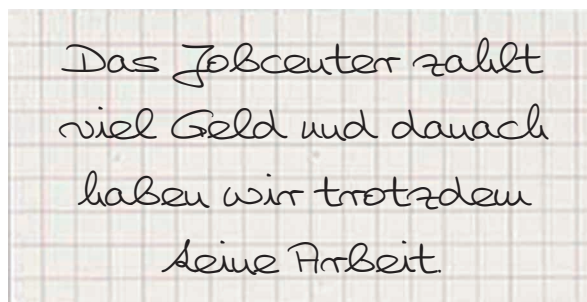 Das Jobcenter zahlt
viel Geld und danach
haben wir trotzdem
keine Arbeit.